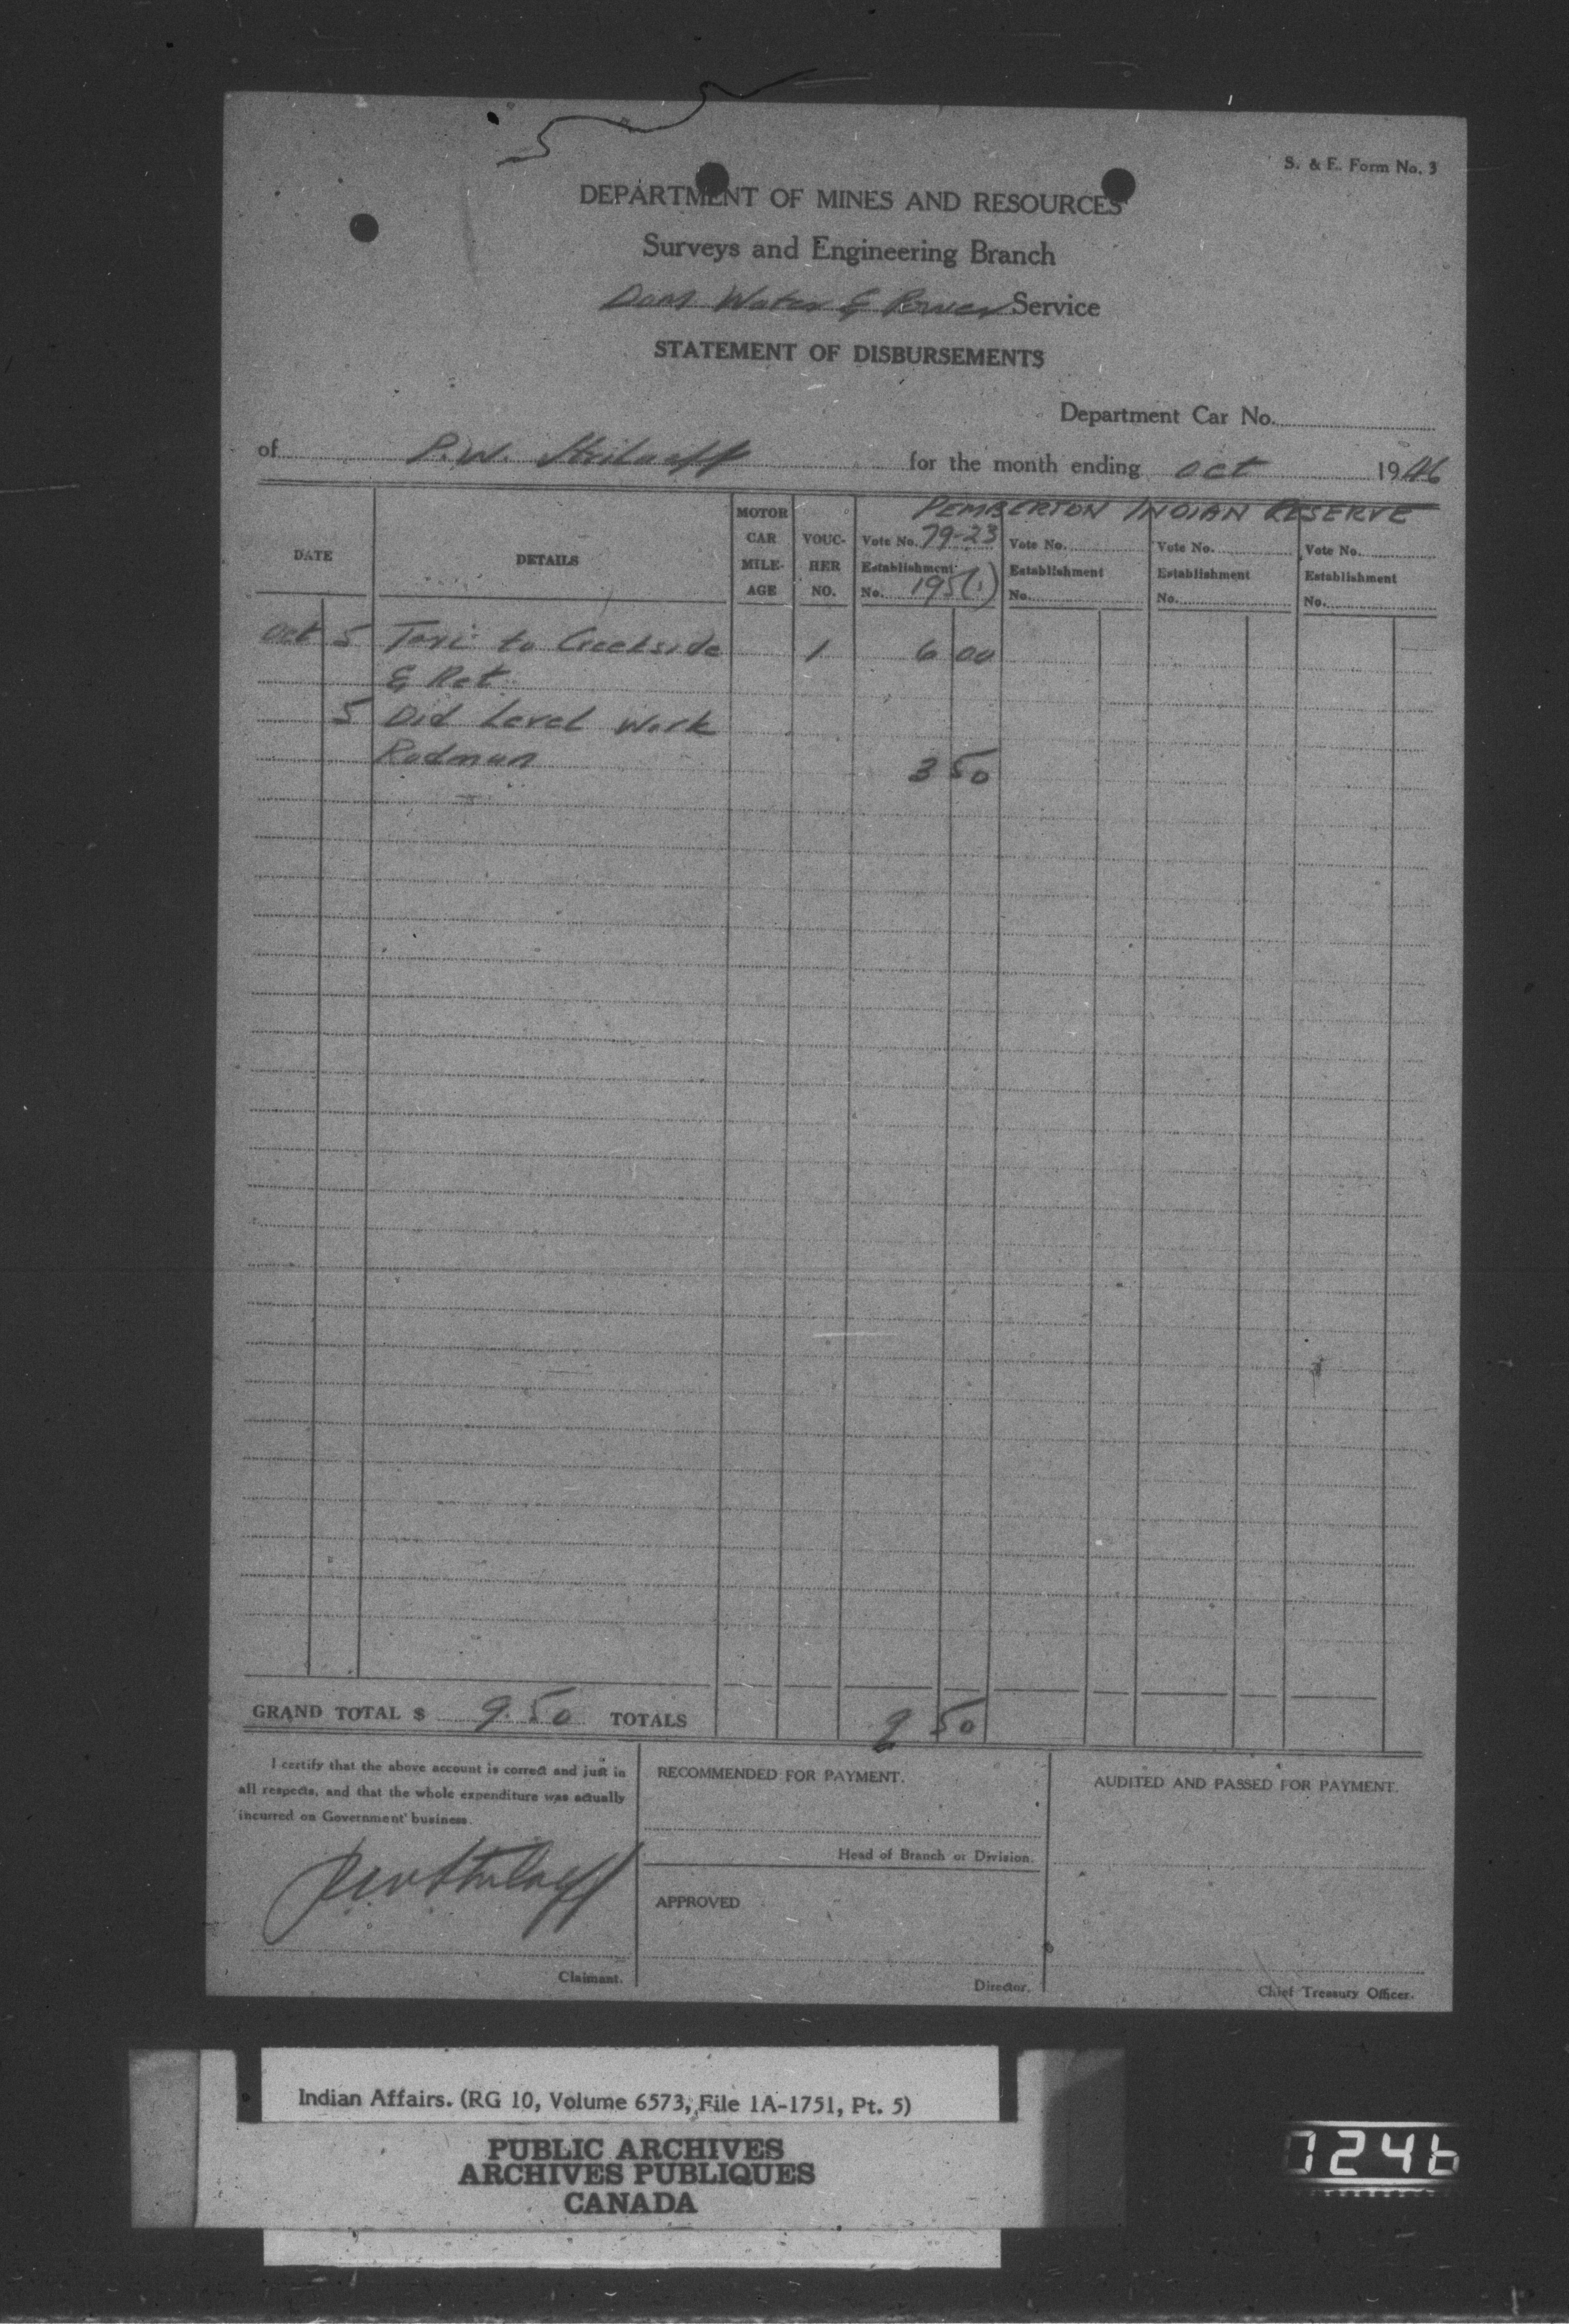 S. & E. Form No. 3
DEPARTMENT OF MINES AND RESOURCES
Surveys and Engineering Branch
Dom Water & Power Service
STATEMENT OF DISBURSEMENTS
Department Car No.
of P.W. Strilaeff for the month ending Oct 1946
PEMBERTON INDIAN RESERVE
DATE DETAILS MOTOR CAR MILE-AGE VOUC-HER NO. Vote No. 79-23 Establishment No. 195(1) Vote No. Establishment No. Vote No. Establishment No. Vote No. Establishment No.
Oct 5 Taxi to Creekside 1 6 00
& Ret
5 Did Level Work
Rodman 3 50
GRAND TOTAL $ 9.50 TOTALS 9 50
I certify that the above account is correct and just in
all respects, and that the whole expenditure was actually
incurred on Government business.
PW Strilaeff
Claimant.
RECOMMENDED FOR PAYMENT.
Head of Branch or Division.
APPROVED
Director.
AUDITED AND PASSED FOR PAYMENT.
Chief Treasury Officer.
Indian Affairs. (RG 10, Volume 6573, File 1A-1751, Pt. 5)
PUBLIC ARCHIVES
ARCHIVES PUBLIQUES
CANADA
7246